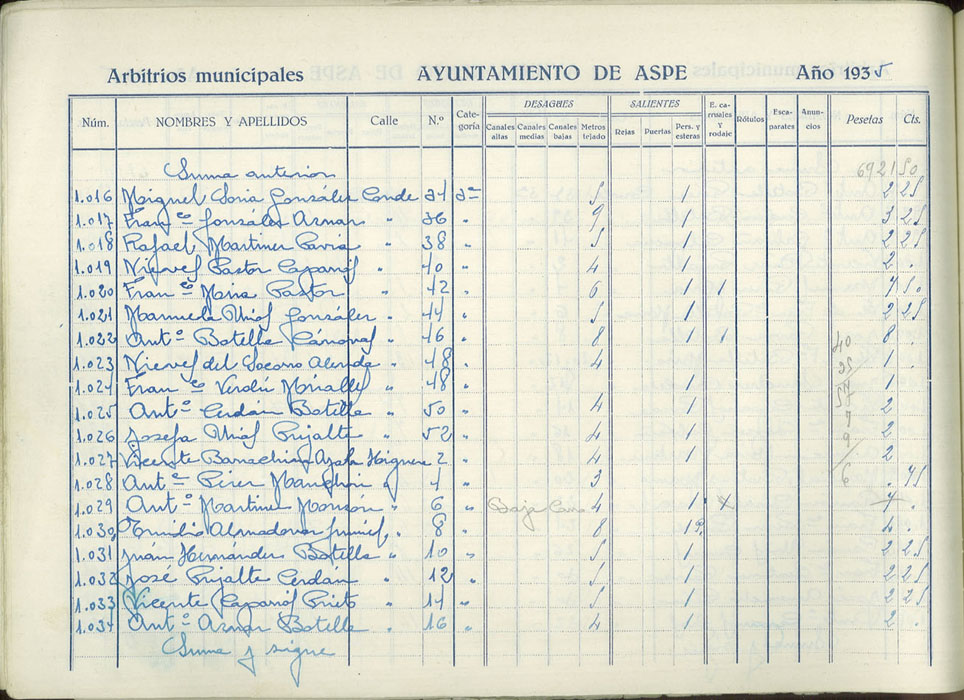 Arbitrios municipales AYUNTAMIENTO DE ASPE Año 1935
Núm. NOMBRES Y APELLIDOS Calle N.º Categoría DESAGÜES Canales altas Canales medias Canales bajas Metros tejado SALIENTES Rejas Puertas Pers. y esteras E. carruajes y rodaje Rótulos Escaparates Anuncios Pesetas Cts.
Suma anterior 6921 50
1.016 Miguel Soria González Conde 34 2ª 5 1 2 25
1.017 Franco González Aznar " 36 " 9 1 3 25
1.018 Rafael Martinez Pavia " 38 " 5 1 2 25
1.019 Nieves Pastor Caparrós " 40 " 4 1 2 .
1.020 Franco Mira Pastor " 42 " 6 1 1 7 50
1.021 Manuela Uriof González " 44 " 5 1 2 25
1.022 Antº Botella Cánovas " 46 " 8 1 1 8 .
1.023 Nieves del Socorro " 48 " 4 1 .
1.024 Franco Verdú Miralles " 48 " 1 1
1.025 Antº Cerdán Botella " 50 " 4 1 2
1.026 Josefa Pujalte " 52 " 4 1 2
1.027 Vicente Ayala Higuera 2 " 4 1 2
1.028 Antº Pérez " 4 " 3 . 75
1.029 Antº Martinez Monzón " 6 " Baja 4 1 X 7 .
1.030 Emilio Almodovar " 8 " 8 1 4 .
1.031 Juán Hernández Botella " 10 " 5 1 2 25
1.032 José Pujalte Cerdán " 12 " 5 1 2 25
1.033 Vicente Caparrós Prieto " 14 " 5 1 2 25
1.034 Antº Aznar Botella " 16 " 4 1 2 .
Suma y sigue